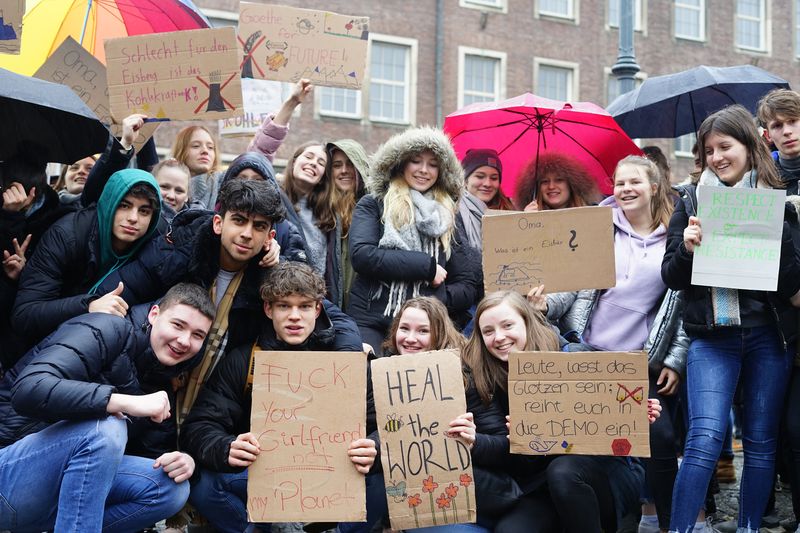 Schlecht für den
Eisberg ist das
Kohlkraft-werK!
Goethe
for
FUTURE!
Oma,
Oma,
Was ist ein Eisbär?
RESPECT
EXISTENCE
OR
EXPECT
RESISTANCE
FUCK
Your
Girlfriend
not
my Planet
HEAL
the
WORLD
Leute, lasst das
Glotzen sein;
reiht euch in
die DEMO ein!